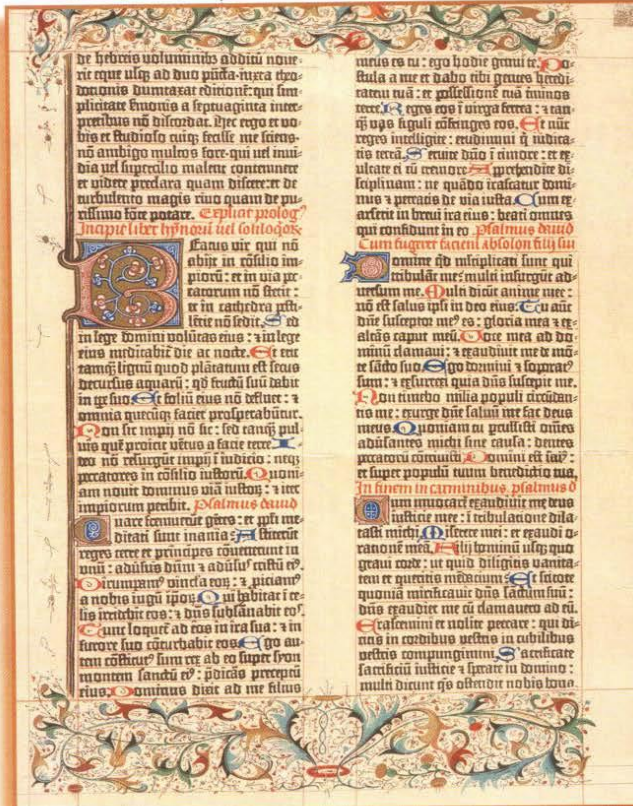 de hebreis voluminibꝫ additū noue-
rit eque usqꝫ ad duo pūcta· iuxta theo-
dotionis dumtaxat editionē: qui sim-
plicitate ẜmonis a septuaginta inter-
pretibus nō discordat. Nec ergo et vo-
bis et studioso cuiqꝫ fecisse me sciens-
nō ambigo multos fore- qui uel inui-
dia uel supercilio malent contemnere
et videre preclara quam discere: et de
turbulento magis riuo quam de pu-
rissimo fōte potare. Explicit prologꝰ
Incipit liber hymnorū uel soliloqiorꝝ
Beatus vir qui nō
abijt in cōsilio im-
piorū: et in via pec-
catorum nō stetit:
et in cathedra pesti-
lētie nō sedit. Sed
in lege domini volūtas eius: ⁊ in lege
eius meditabit̄ die ac nocte. Et erit
tamqꝫ lignū quod plātatum est secus
decursus aquarū: qd̄ fructū suū dabit
in tꝑe suo. Et foliū eius nō defluet: ⁊
omnia quecūqꝫ faciet prosperabūtur.
Non sic impij nō sic: sed tamqꝫ pul-
vis quē proicit vētus a facie terre. I-
deo nō resurgūt impij ī iudicio: neqꝫ
peccatores in cōsilio iustorū. Quoni-
am nouit dominus viam iustorꝝ: ⁊ iter
impiorum peribit. Psalmus david
Quare fremuerūt gētes: et ppl̄i me-
ditati sunt inania. Astiterūt
reges terre et principes cōuenerunt in
unū: adūsus dūm ⁊ adūsus cristū eiꝰ.
Dirumpamꝰ vincla eorꝝ: ⁊ piciamꝰ
a nobis iugū ip̄orꝝ. Qui habitat ī ce-
lis irridebit eos: ⁊ dn̄s subsānabit eos.
Tunc loquet̄ ad eos in ira sua: ⁊ in
furore suo cōturbabit eos. Ego au-
tem cōstitutꝰ sum rex ab eo super syon
montem sanctū eiꝰ: p̄dicās preceptū
eius. Dominus dixit ad me filius
meus es tu: ego hodie genui te. Po-
stula a me et dabo tibi gentes heredi-
tatem tuā: et possessionē tuā tīminos
terre. Reges eos ī virga ferrea: ⁊ tan-
qꝫ vas figuli cōfringes eos. Et nūc
reges intelligite: erudimini q̇ iudica-
tis terrā. Seruite dn̄o ī timore: et ex-
ultate ei cū tremore. Apprehendite di-
sciplinam: ne quādo irascatur domi-
nus ⁊ pereatis de via iusta. Cum ex-
arserit in breui ira eius: beati omnes
qui confidunt in eo. Psalmus dauid
Cum fugeret faciem absolon filij sui
Domine qd̄ mltiplicati sunt qui
tribulāt me: multi insurgūt ad-
versum me. Multi dicūt anime mee:
nō est salus ipsi in deo eius. Tu autē
dn̄e susceptor meꝰ es: gloria mea ⁊ ex-
altās caput meū. Voce mea ad do-
minū clamaui: ⁊ exaudiuit me de mō-
te sācto suo. Ego dormiui ⁊ soporatꝰ
sum: ⁊ exsurrexi quia dn̄s suscepit me.
Non timebo milia populi circūdan-
tis me: exurge dn̄e saluū me fac deus
meus. Quoniam tu percussisti om̄es
adūsantes michi sine causa: dentes
peccatorū cōtriuisti. Domini est salꝰ:
et super populū tuum benedictio tua.
In finem in carminibus, psalmus d
Cum inuocarē exaudiuit me deus
iusticie mee: ī tribulatione dila-
tasti michi. Miserere mei: et exaudi o-
rationē meā. Filij hominū usqꝫ quo
graui corde: ut quid diligitis vanita-
tem et queritis mēdacium. Et scitote
quoniā mirificauit dn̄s sāctum suū:
dn̄s exaudiet me cū clamauero ad eū.
Irascemini et nolite peccare: qui di-
citis in cordibus vestris in cubilibus
vestris compungimini. Sacrificate
sacrificiū iusticie ⁊ sperate in domino:
multi dicunt qis ostendit nobis bona.